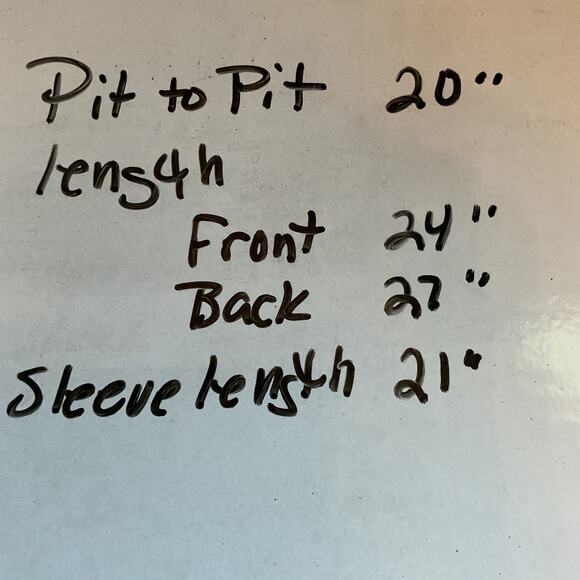 Pit to Pit 20"
length
Front 24"
Back 27"
Sleeve length 21"